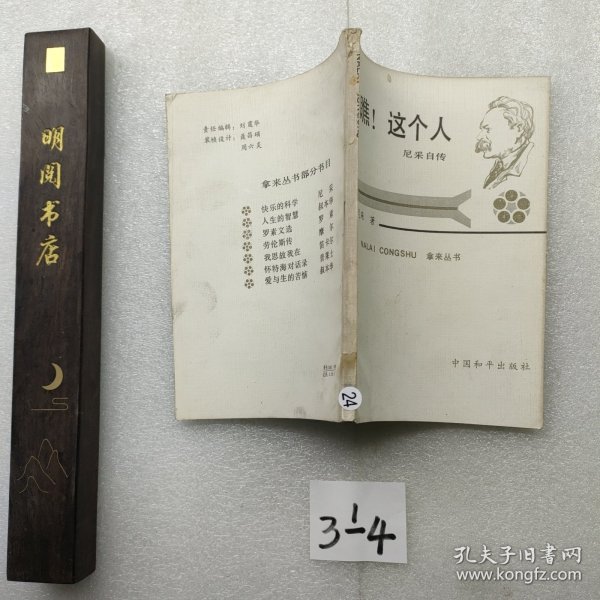 明阅书店
责任编辑：刘爱华
装帧设计：聂昌硕
周六炎
拿来丛书部分书目
快乐的科学 尼采
人生的智慧 叔本华
罗素文选 罗素
劳伦斯传 摩尔
我思故我在 笛卡尔
怀特海对话录
爱与生的苦恼 叔本华
瞧！这个人
尼采自传
著
NALAI CONGSHU 拿来丛书
中国和平出版社
24
3 1-4
孔夫子旧书网
www.kongfz.com